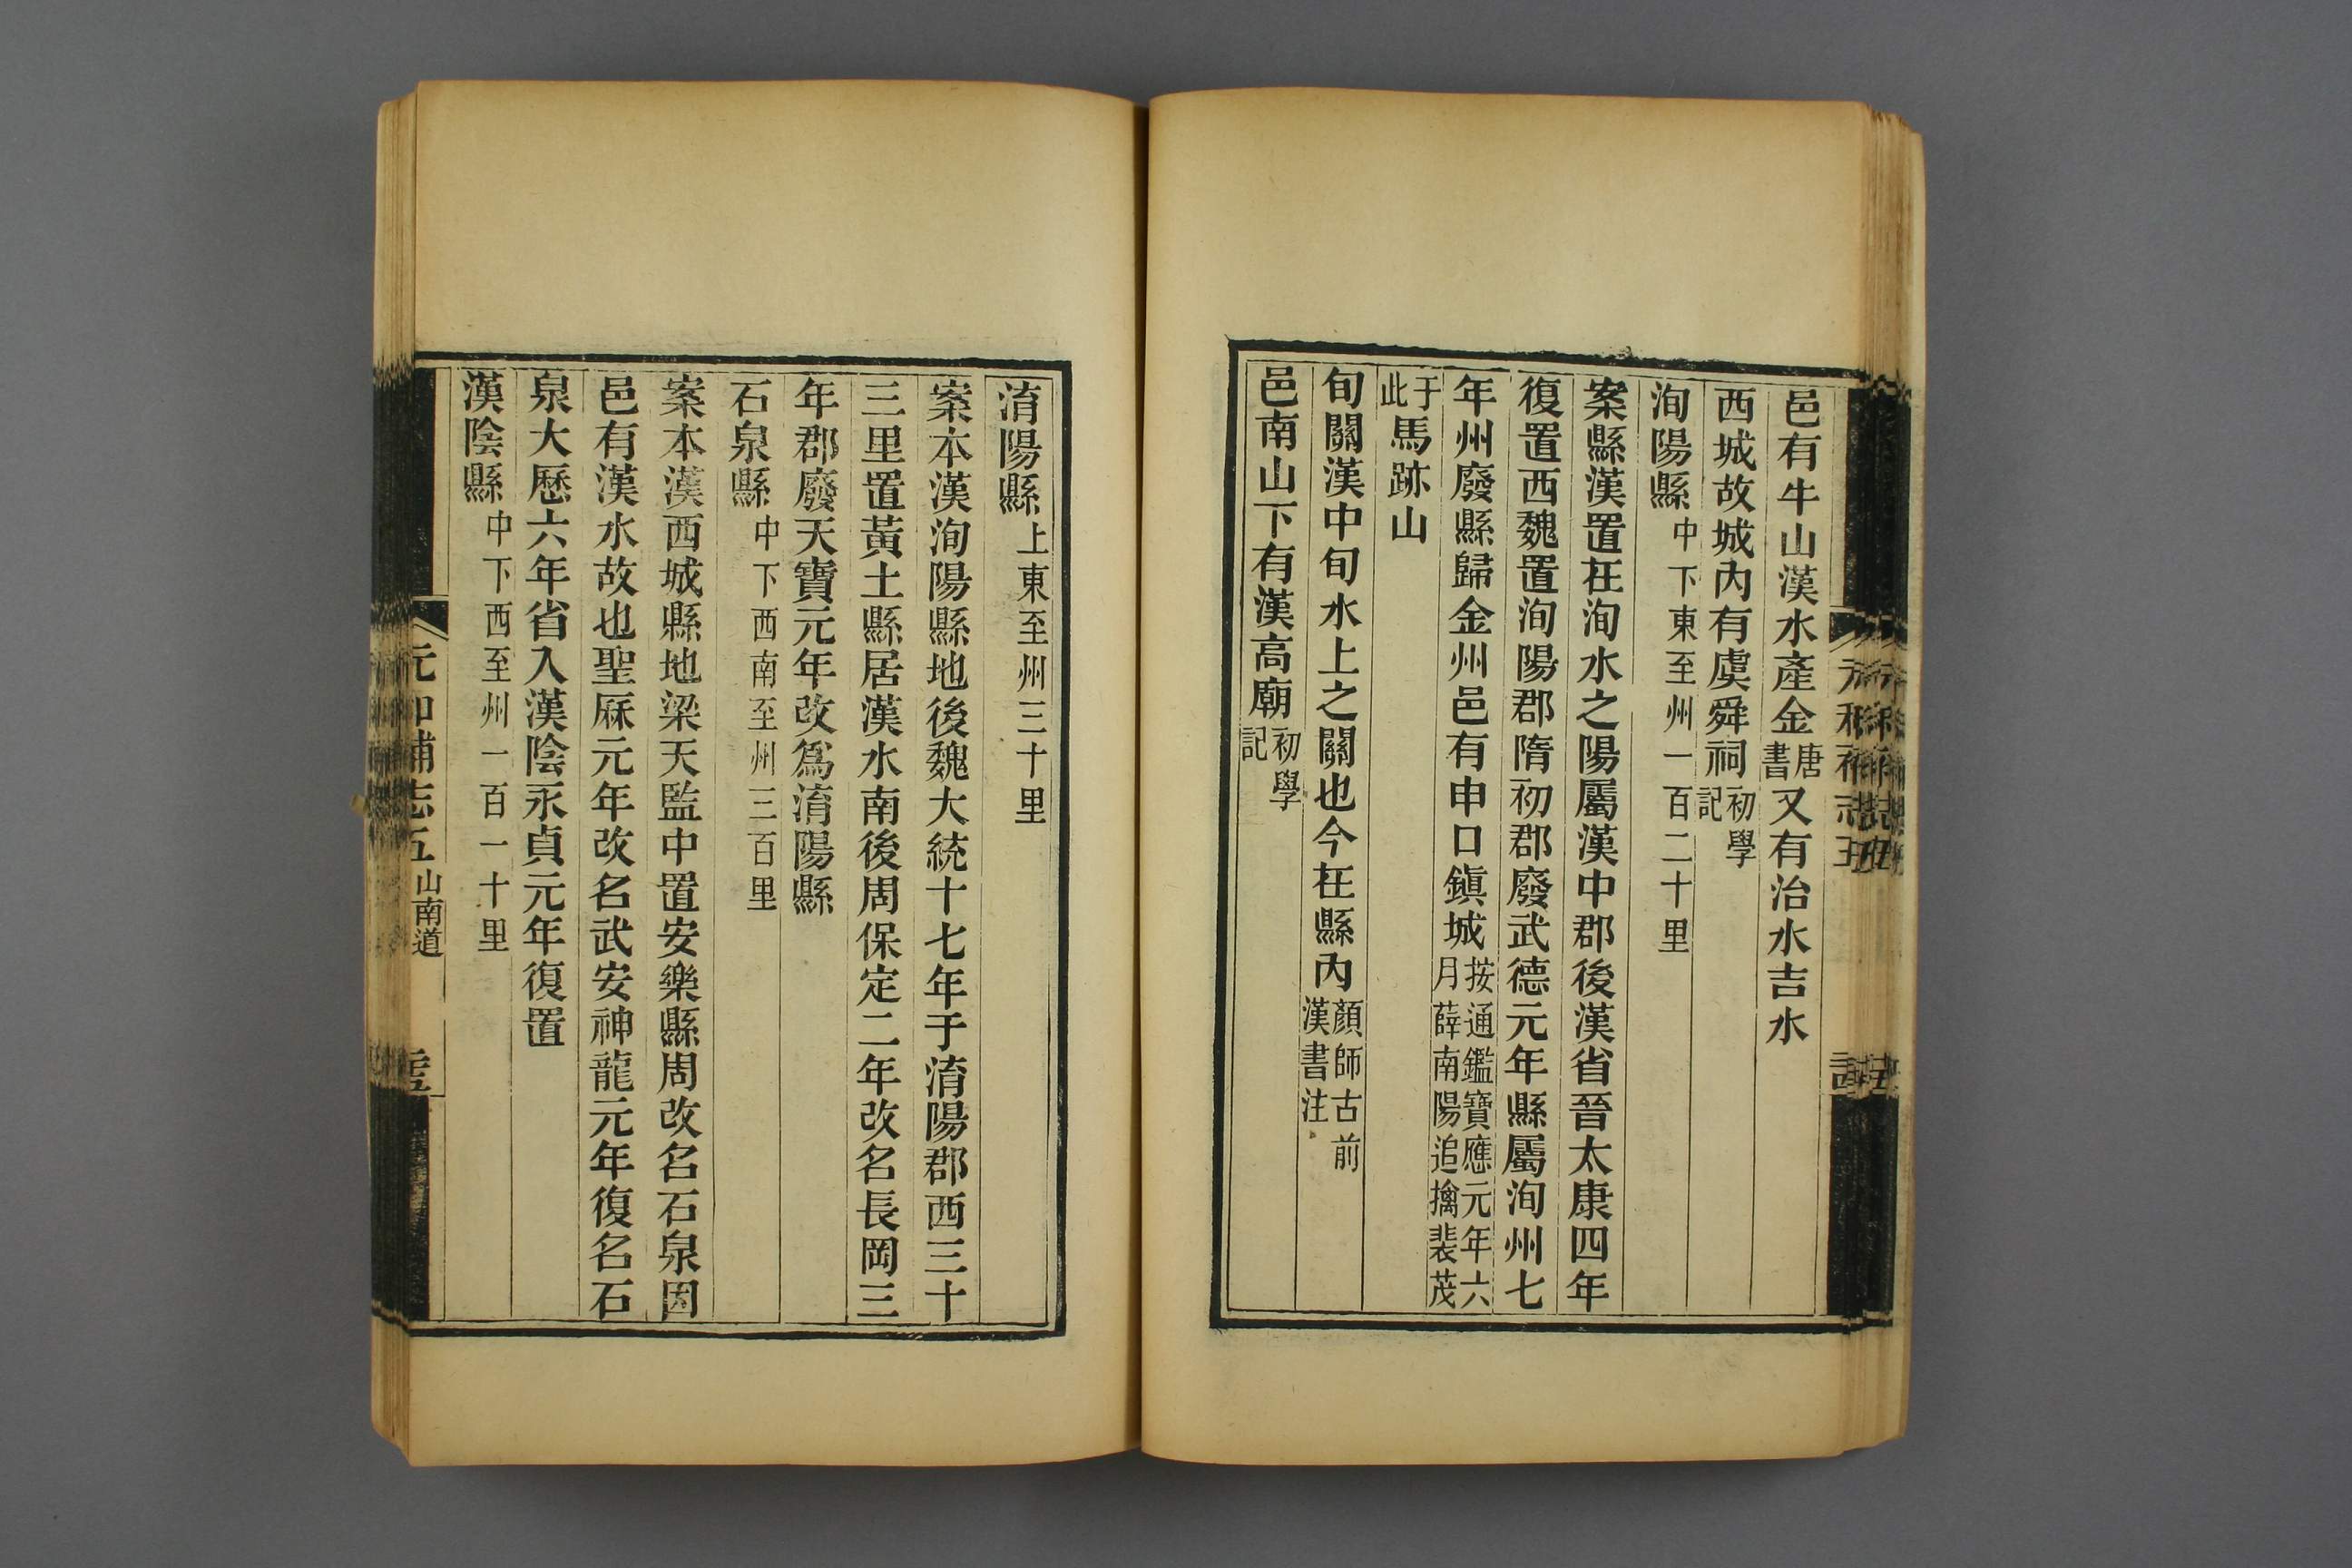 邑有牛山漢水產金唐書又有治水吉水
西城故城內有虞舜祠初學記
洵陽縣中下東至州一百二十里
案縣漢置在洵水之陽屬漢中郡後漢省晉太康四年
復置西魏置洵陽郡隋初郡廢武德元年縣屬洵州七
年州廢縣歸金州邑有申口鎭城按通鑑寶應元年六月薛南陽追擒裴茂
于此馬跡山
旬關漢中旬水上之關也今在縣內顏師古前漢書注
邑南山下有漢高廟初學記
淯陽縣上東至州三十里
案本漢洵陽縣地後魏大統十七年于淯陽郡西三十
三里置黃土縣居漢水南後周保定二年改名長岡三
年郡廢天寶元年改爲淯陽縣
石泉縣中下西南至州三百里
案本漢西城縣地梁天監中置安樂縣周改名石泉因
邑有漢水故也聖厤元年改名武安神龍元年復名石
泉大歷六年省入漢陰永貞元年復置
漢陰縣中下西至州一百一十里
元和補志五山南道